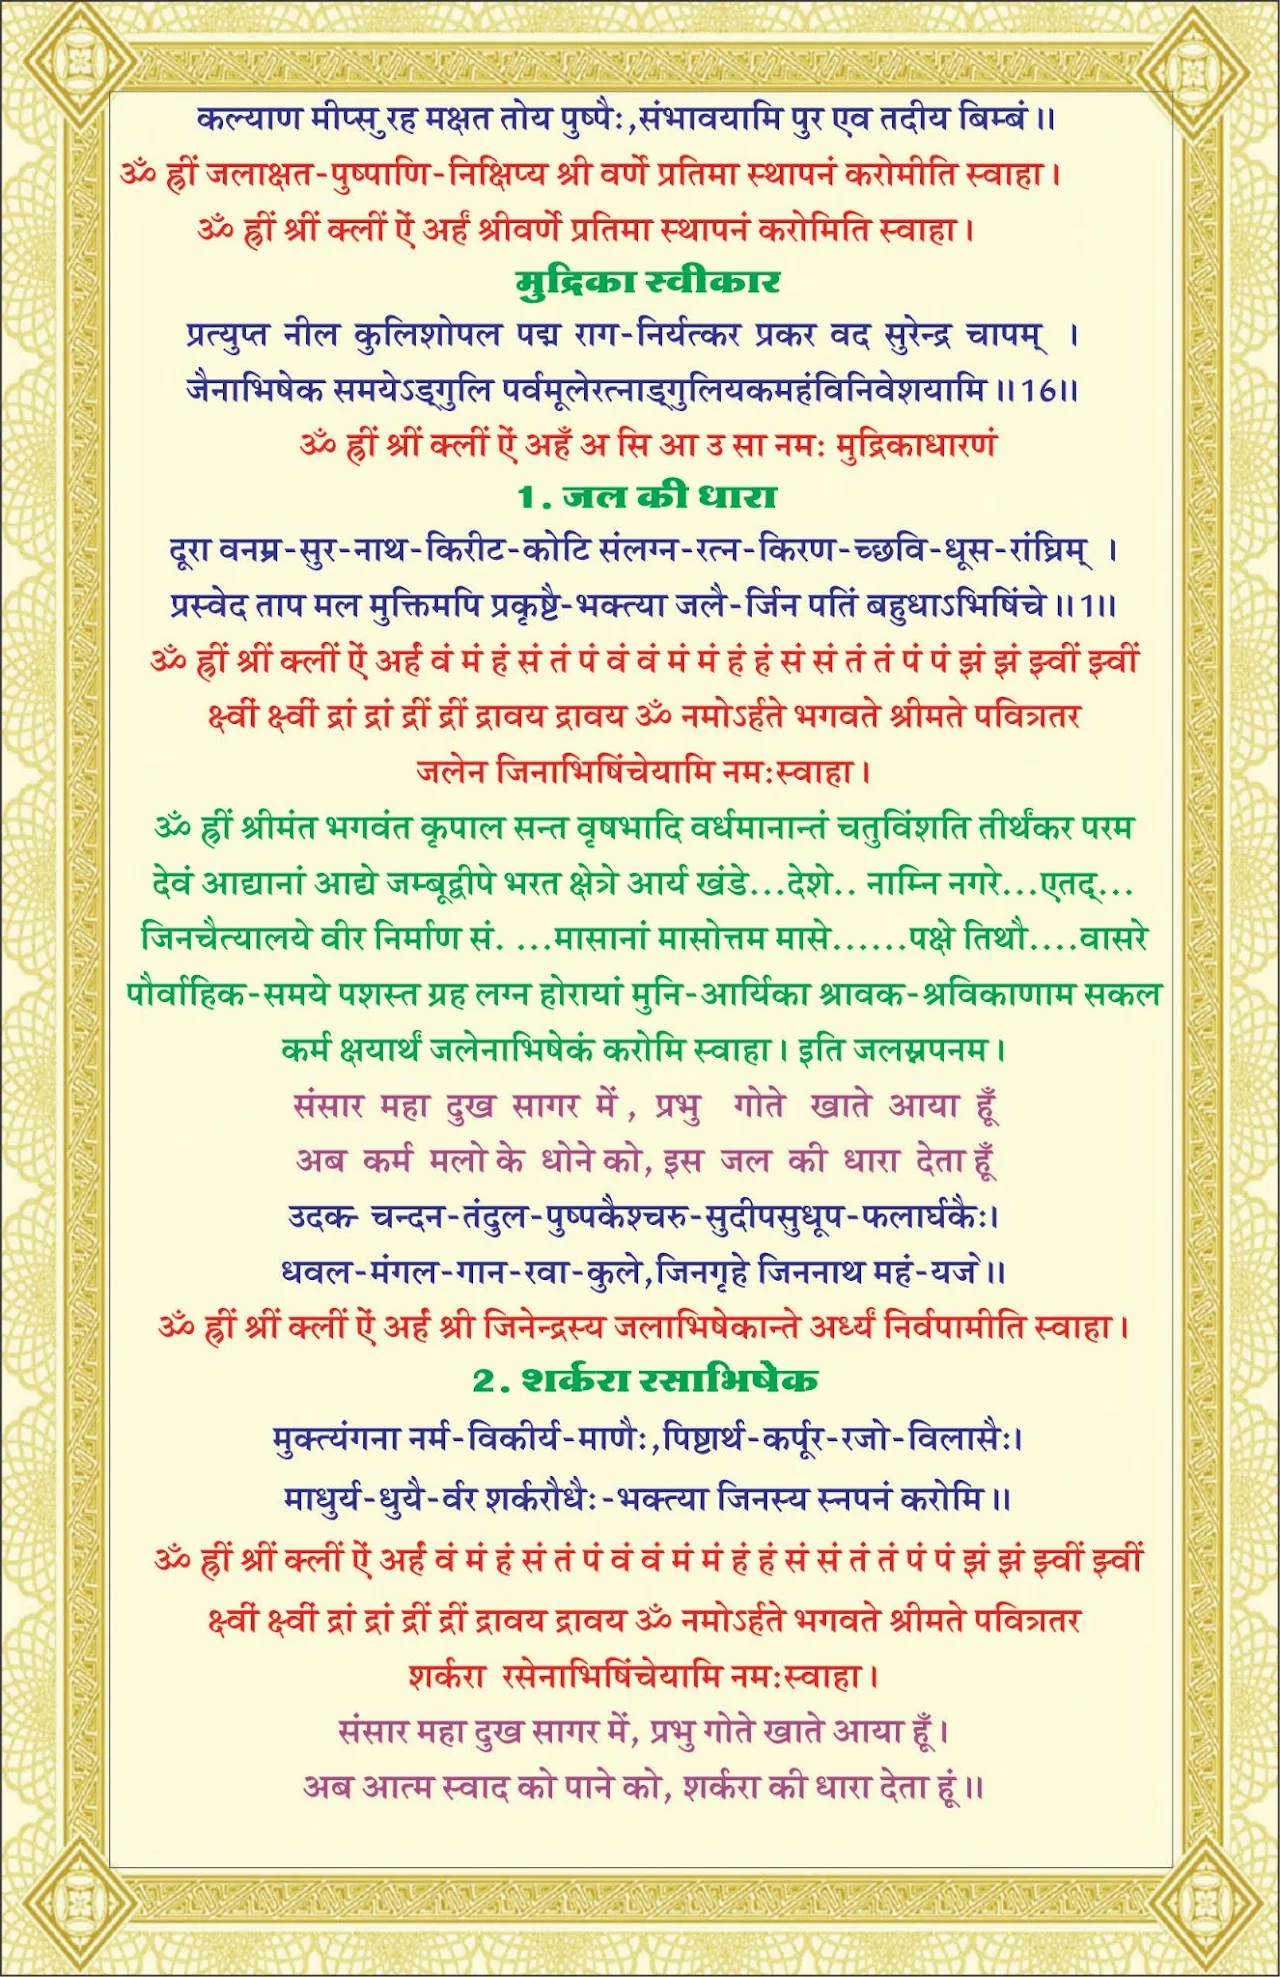 कल्याण मीप्सुरह मक्षत तोय पुष्पैः,संभावयामि पुर एव तदीय बिम्बं॥
ॐ ह्रीं जलाक्षत-पुष्पाणि-निक्षिप्य श्री वर्णे प्रतिमा स्थापनं करोमीति स्वाहा।
ॐ ह्रीं श्रीं क्लीं ऐं अर्हं श्रीवर्णे प्रतिमा स्थापनं करोमिति स्वाहा।
मुद्रिका स्वीकार
प्रत्युप्त नील कुलिशोपल पद्म राग-निर्यत्कर प्रकर वद सुरेन्द्र चापम् ।
जैनाभिषेक समयेऽड्गुलि पर्वमूलेरत्नाड्गुलियकमहंविनिवेशयामि॥16॥
ॐ ह्रीं श्रीं क्लीं ऐं अहँ अ सि आ उ सा नमः मुद्रिकाधारणं
1. जल की धारा
दूरा वनम्र-सुर-नाथ-किरीट-कोटि संलग्न-रत्न-किरण-च्छवि-धूस-रांघ्रिम् ।
प्रस्वेद ताप मल मुक्तिमपि प्रकृष्टै-भक्त्या जलै-र्जिन पतिं बहुधाऽभिषिंचे॥1॥
ॐ ह्रीं श्रीं क्लीं ऐं अर्हं वं मं हं सं तं पं वं वं मं मं हं हं सं सं तं तं पं पं झं झं झ्वीं झ्वीं
क्ष्वीं क्ष्वीं द्रां द्रां द्रीं द्रीं द्रावय द्रावय ॐ नमोऽर्हते भगवते श्रीमते पवित्रतर
जलेन जिनाभिषिंचेयामि नमःस्वाहा।
ॐ ह्रीं श्रीमंत भगवंत कृपाल सन्त वृषभादि वर्धमानान्तं चतुविंशति तीर्थंकर परम
देवं आद्यानां आद्ये जम्बूद्वीपे भरत क्षेत्रे आर्य खंडे...देशे.. नाम्नि नगरे...एतद्...
जिनचैत्यालये वीर निर्माण सं. ...मासानां मासोत्तम मासे......पक्षे तिथौ....वासरे
पौर्वाहिक-समये पशस्त ग्रह लग्न होरायां मुनि-आर्यिका श्रावक-श्रविकाणाम सकल
कर्म क्षयार्थं जलेनाभिषेकं करोमि स्वाहा। इति जलस्नपनम।
संसार महा दुख सागर में, प्रभु गोते खाते आया हूँ
अब कर्म मलो के धोने को, इस जल की धारा देता हूँ
उदक चन्दन-तंदुल-पुष्पकैश्चरु-सुदीपसुधूप-फलार्घकैः।
धवल-मंगल-गान-रवा-कुले,जिनगृहे जिननाथ महं-यजे॥
ॐ ह्रीं श्रीं क्लीं ऐं अर्हं श्री जिनेन्द्रस्य जलाभिषेकान्ते अर्ध्यं निर्वपामीति स्वाहा।
2. शर्करा रसाभिषेक
मुक्त्यंगना नर्म-विकीर्य-माणैः,पिष्टार्थ-कर्पूर-रजो-विलासैः।
माधुर्य-धुयै-र्वर शर्करौधैः-भक्त्या जिनस्य स्नपनं करोमि॥
ॐ ह्रीं श्रीं क्लीं ऐं अर्हं वं मं हं सं तं पं वं वं मं मं हं हं सं सं तं तं पं पं झं झं झ्वीं झ्वीं
क्ष्वीं क्ष्वीं द्रां द्रां द्रीं द्रीं द्रावय द्रावय ॐ नमोऽर्हते भगवते श्रीमते पवित्रतर
शर्करा रसेनाभिषिंचेयामि नमःस्वाहा।
संसार महा दुख सागर में, प्रभु गोते खाते आया हूँ।
अब आत्म स्वाद को पाने को, शर्करा की धारा देता हूं॥